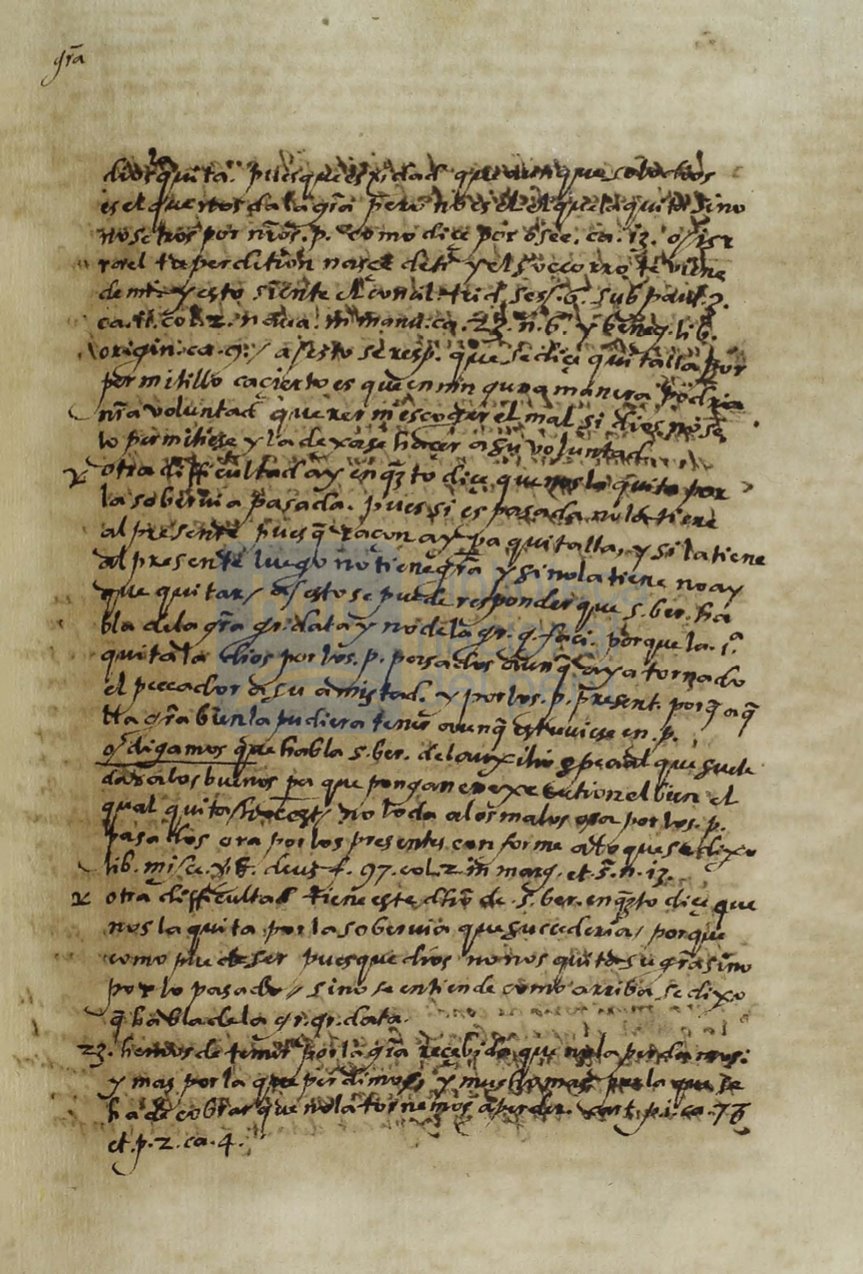 grã
dios quita. pues que es xidad que aunque solo dios
es el que nos da la grã pero no es el el que la quita sino
nosotros por nros. p. como dice por osee. ca. 13. o isr
rael tu perdetion nasce de ti y el soccorro te viene
de mi y esto siente el concil. trid. ses. 6. sub paul. 3.
ca. 11. col. 2. naua. in manu. ca. 23. n. 6. y lib.
origin. ca. 9. / a esto se resp. que se dice quitalla por
permitillo ca cierto es que en ninguna manera podria
nrã voluntad querer ni escoger el mal si dios no se
lo permitiese y la dexase hacer a su voluntad.
otra difficultad ay en qto dice que nos la quita por
la soberuia pasada. pues si es pasada no la tiene
al presente pues q̃ raçon ay pa quitalla, y si la tiene
al presente luego no tiene grã y si no la tiene no ay
que quitar / a esto se puede responder que s. ber. ha
bla de la grã gr. data y no de la gr. g. faci. porque la. s.ª
quitala dios por los. p. pasados aunq̃ aya tornado
el peccador a su amistad. y por los. p. present. porq̃ aq̃
lla grã bien la pudiera tener aunq̃ estuuiese en p.
o digamos que habla s. ber. del auxilio special que suele
dar a los buenos pa que pongan en exsecution el bien el
qual quita / no lo da a los malos ora por los. p.
pasados ora por los presentes conforme a lo que se dixo
lib. deus f. 97. col. 2. in marg. et s̃. n. 13.
otra difficultad tiene este dho de s. ber. en qto dice que
nos la quita por la soberuia que sucederia / porque
como puede ser pues que dios no nos quita su grã sino
por lo pasado // sino se entiende como arriba se dixo
q̃ habla de la gr. gr. data.
23. hemos de temer por la grã recebida que no la perdamos.
y mas por la que perdimos, y mucho mas por la que se
ha de cobrar que no la tornemos a perder. cart. p. 1. ca. 76
et. p. 2. ca. 4.